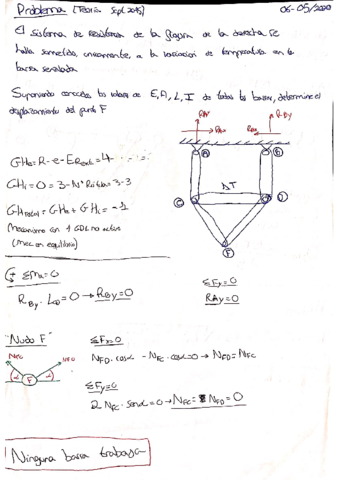 Problema [Teoría Sept 2015] 06-05/2020
El sistema de resistencia de la figura de la derecha se
halla sometido, únicamente, a la variación de temperatura en la
barra señalada
Suponiendo conocidos los valores de E, A, L, I de todas las barras, determine el
desplazamiento del punto F
RAy
RAx
RBx
RBy
A
B
ΔT
C
D
F
GHe = R - e - E
= 4
GHi = 0 = 3 - Nº
= 3 - 3
GHTotal = GHe + GHi = -1
Mecanismo con 1 GDL no activo
(Mec en equilibrio)
+ ΣMA = 0
RBy · LCD = 0 → RBy = 0
ΣFy = 0
RAy = 0
Nudo F
NFC
NFD
α
F
α
ΣFx = 0
NFD · cosα - NFC · cosα = 0 → NFD = NFC
ΣFy = 0
2 NFC · senα = 0 → NFC = NFD = 0
Ninguna barra trabaja